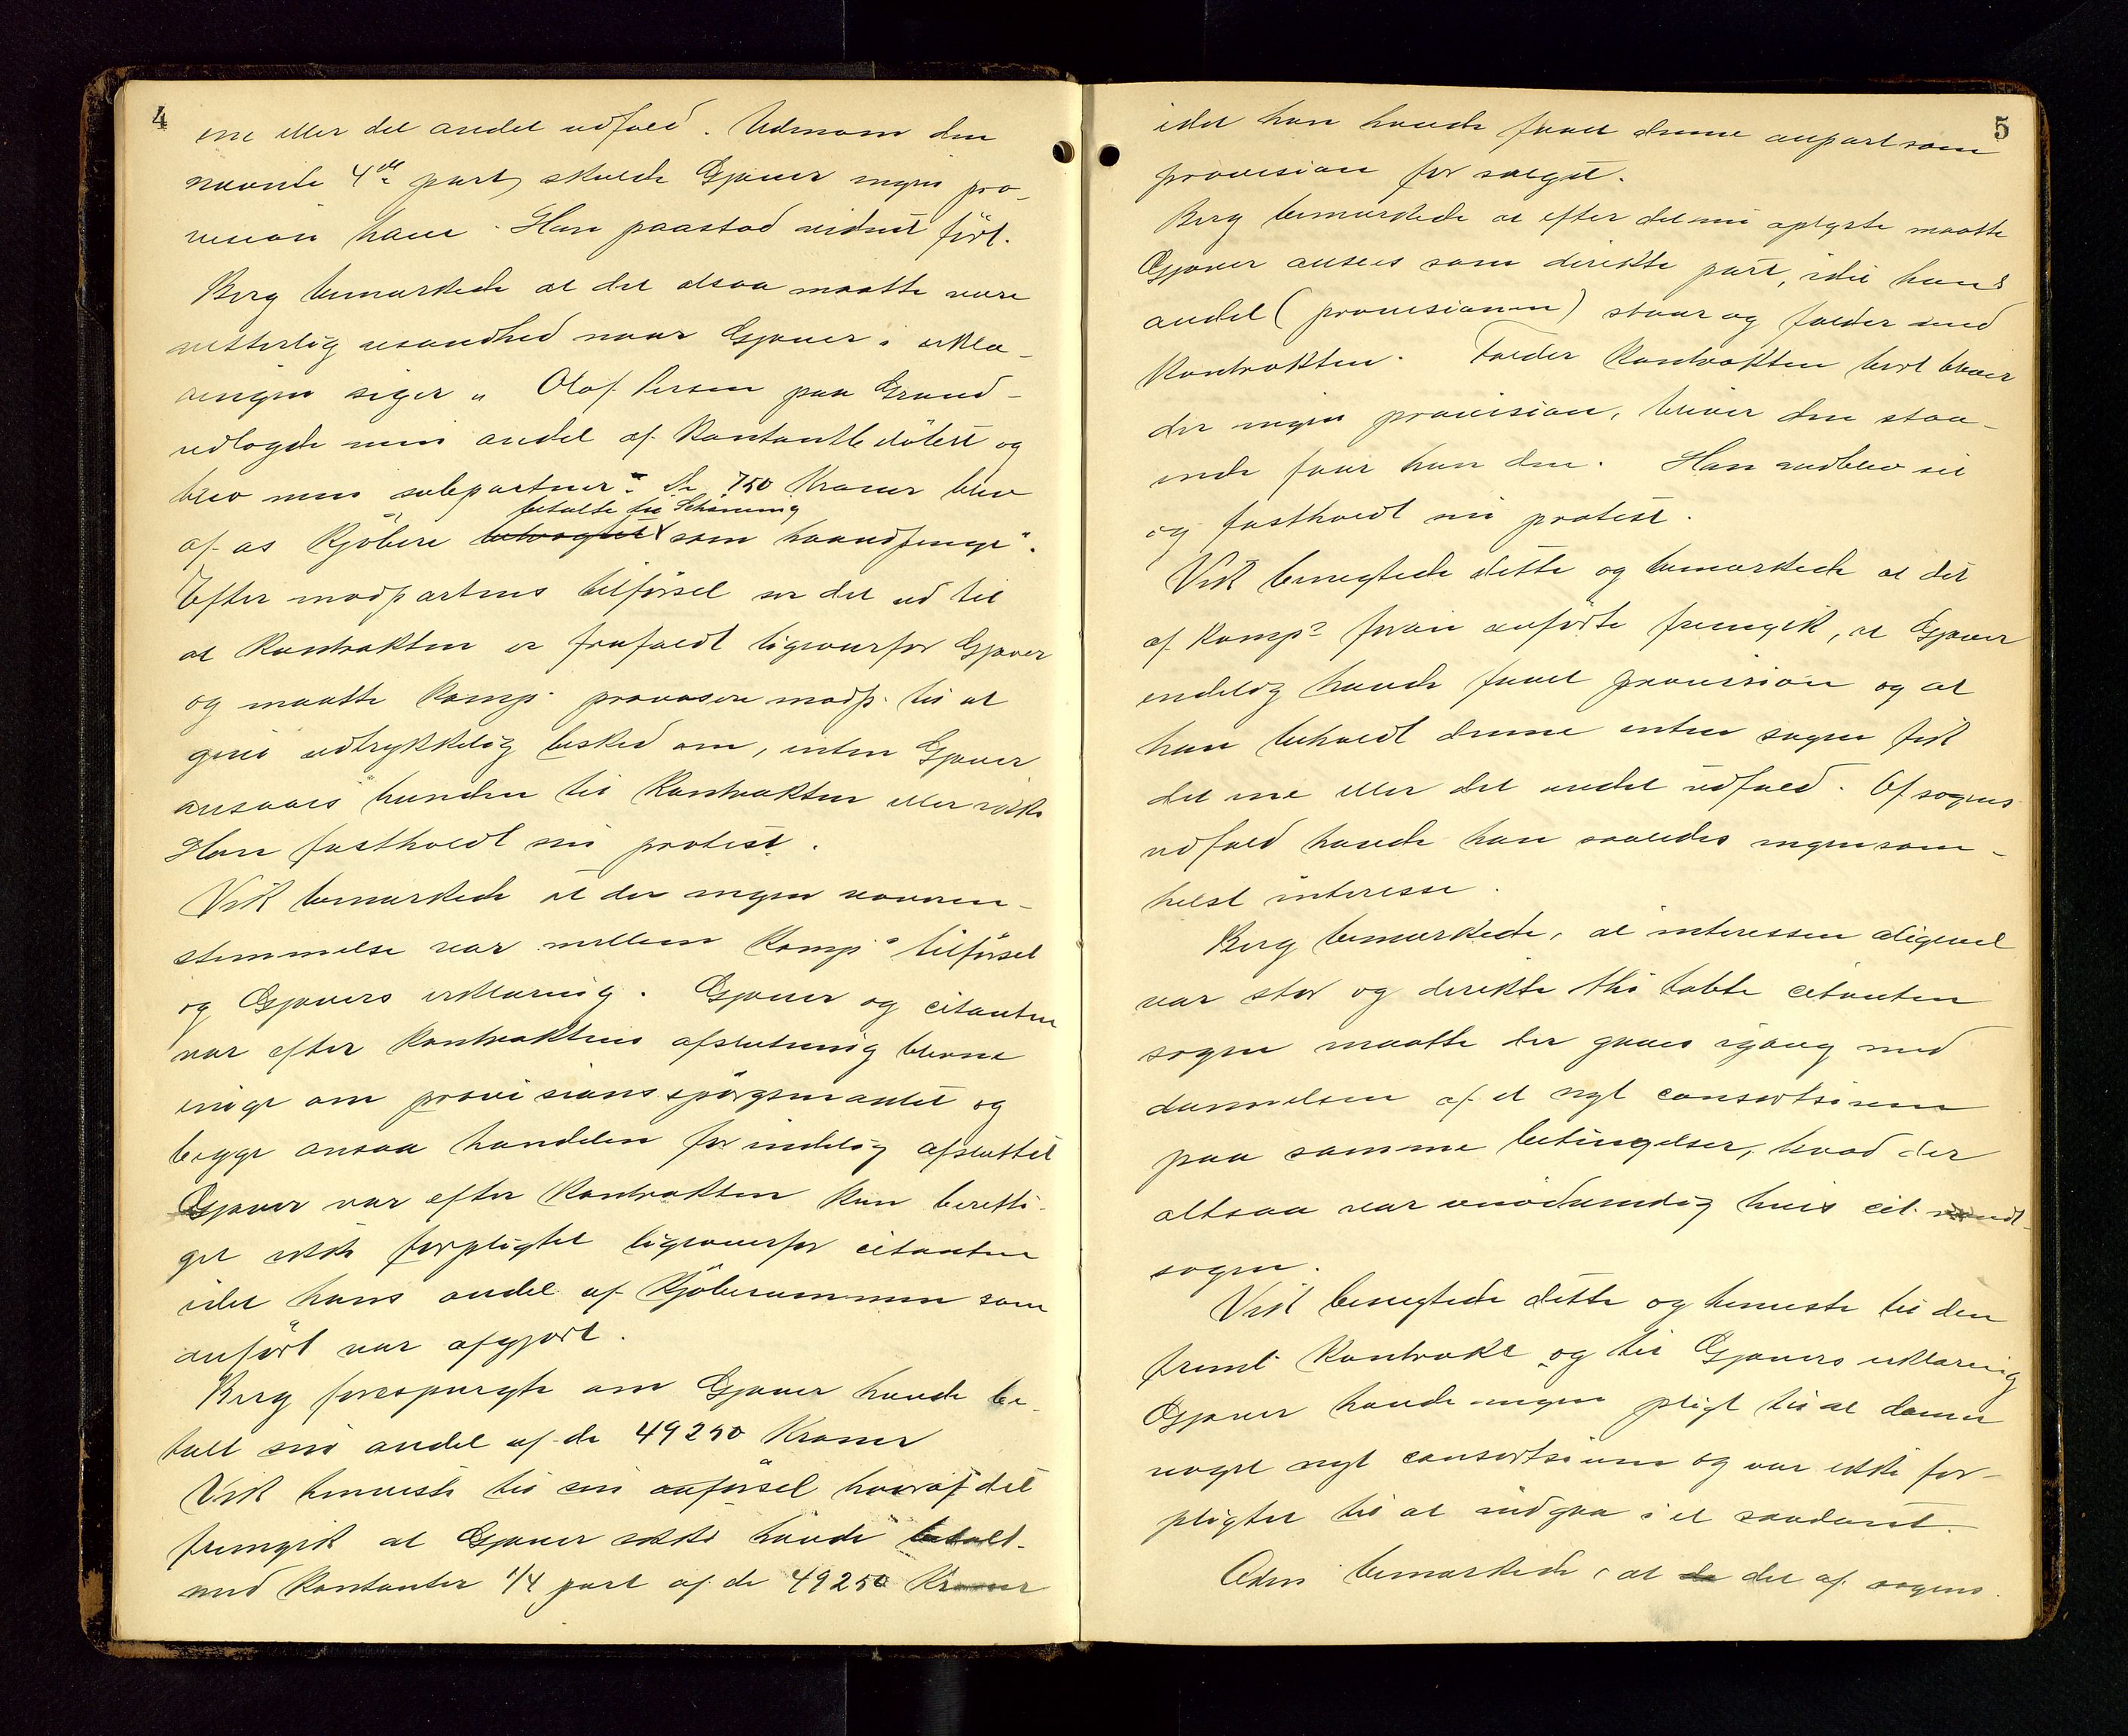 4
ene eller det andet udfald. Udenom den
nævnte 4de part skulde Gjæver ingen pro-
vision have. Han paastod vidnet ført.
Berg bemærkede at det altsaa maatte være
vitterlig usandhed naar Gjæver i erklæ-
ringen siger "Olaf Larsen paa Grund-
udlagde min andel af kontantbeløbet og
blev min subpartner". De 750 Kroner blev
betalte til Schanning
af os Kjøbere som haandpenge".
Efter modpartens tilførsel ser det ud til
at kontrakten er frafaldt ligeoverfor Gjæver
og maatte komp. provosere modp. til at
give udtrykkelig besked om, enten Gjæver
ansaaes bunden til Kontrakten eller ikke
Han fastholdt sin protest.
Vik bemærkede at der ingen overens-
stemmelse var mellem Komp.s tilførsel
og Gjævers erklæring. Gjæver og citanten
var efter Kontraktens afslutning blevne
enige om provisionsspørgsmaalet og
begge ansaa handelen for endelig afsluttet
Gjæver var efter Kontrakten kun beretti-
get ikke forpligtet ligeoverfor citanten
idet hans andel af Kjøbesummen som
anført var afgjort.
Berg forespurgte om Gjæver havde be-
talt sin andel af de 49250 Kroner
Vik henviste til sin anførsel hvoraf det
fremgik at Gjæver ikke havde betalt
med kontanter 1/4 part af de 49250 Kroner
5
idet han havde faaet denne anpart som
provision for salget.
Berg bemærkede at efter det nu oplyste maatte
Gjæver ansees som direkte part, idet hans
andel (provisionen) staar og falder med
Kontrakten. Falder Kontrakten bort bliver
der ingen provision, bliver den staa-
ende faar han den. Han vedblev sit
og fastholdt sin protest.
Vik benegtede dette og bemærkede at det
af Komp. foran anførte fremgik, at Gjæver
endelig havde faaet provision og at
han beholdt denne enten sagen fik
det ene eller det andet udfald. Af sagens
udfald havde han saaledes ingensom-
helst interesse.
Berg bemærkede, at interessen aligevel
var stor og direkte thi tabte citanten
sagen maatte der gaaes igang med
dannelsen af et nyt consortsium
paa samme betingelser, hvad der
altsaa var unødvendig hvis cit. vandt
sagen.
Vik benegtede dette og henviste til den
freml. Kontrakt og til Gjævers erklæring
Gjæver havde ingen pligt til at danne
noget nyt consortsium og var ikke for-
pligtet til at indgaa i et saadant.
Adm. bemærkede, at det af sagens